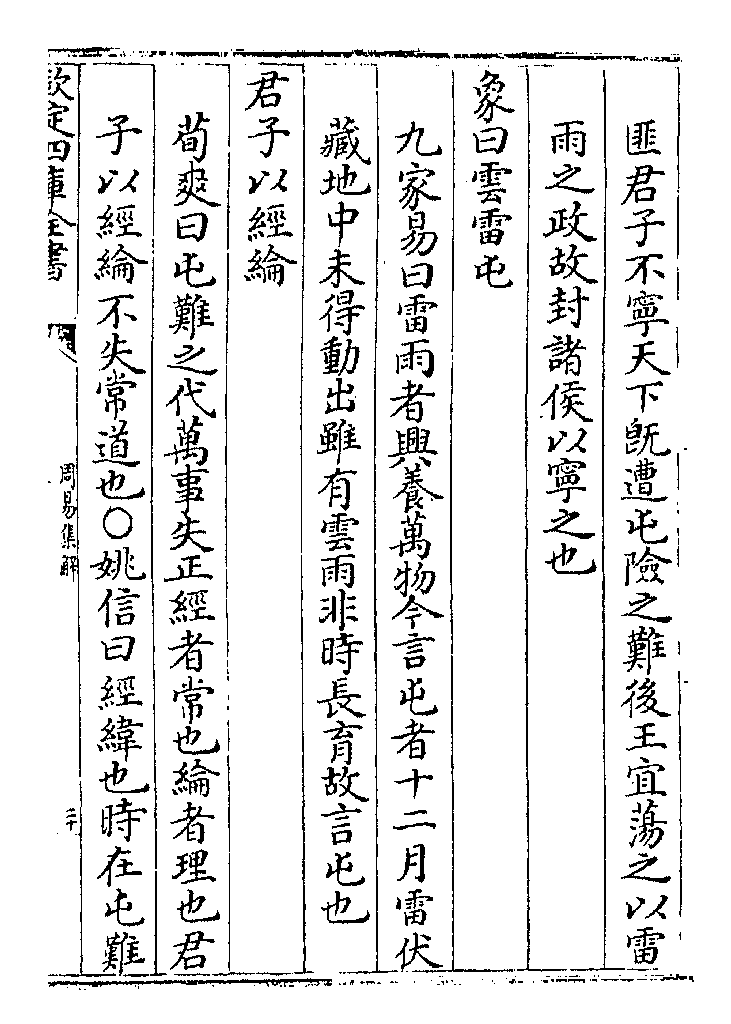 匪君子不寧天下旣遭屯險之難後王宜蕩之以雷
雨之政故封諸侯以寧之也
象曰雲雷屯
九家易曰雷雨者興養萬物今言屯者十二月雷伏
藏地中未得動出雖有雲雨非時長育故言屯也
君子以經綸
荀爽曰屯難之代萬事失正經者常也綸者理也君
子以經綸不失常道也○姚信曰經緯也時在屯難
欽定四庫全書
周易集解
二十